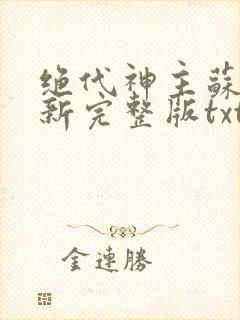 绝代神主蘇
新完整版txt
金連勝